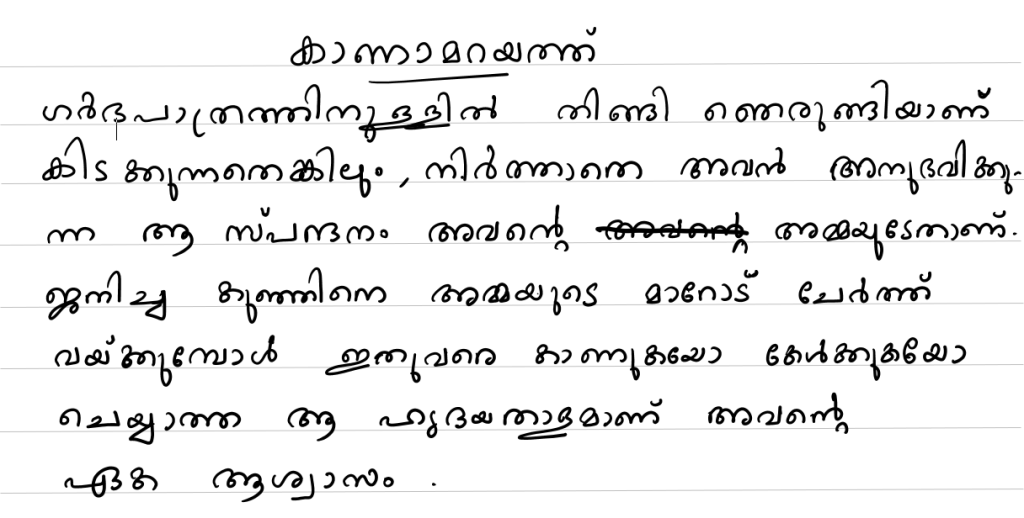 കാണാമറയത്ത്
ഗർഭപാത്രത്തിനുള്ളിൽ തിങ്ങി ഞെരുങ്ങിയാണ്
കിടക്കുന്നതെങ്കിലും, നിർത്താതെ അവൻ അനുഭവിക്കു-
ന്ന ആ സ്പന്ദനം അവന്റെ അമ്മയുടേതാണ്.
ജനിച്ച കുഞ്ഞിനെ അമ്മയുടെ മാറോട് ചേർത്ത്
വയ്ക്കുമ്പോൾ ഇതുവരെ കാണുകയോ കേൾക്കുകയോ
ചെയ്യാത്ത ആ ഹൃദയതാളമാണ് അവന്റെ
ഏക ആശ്വാസം.